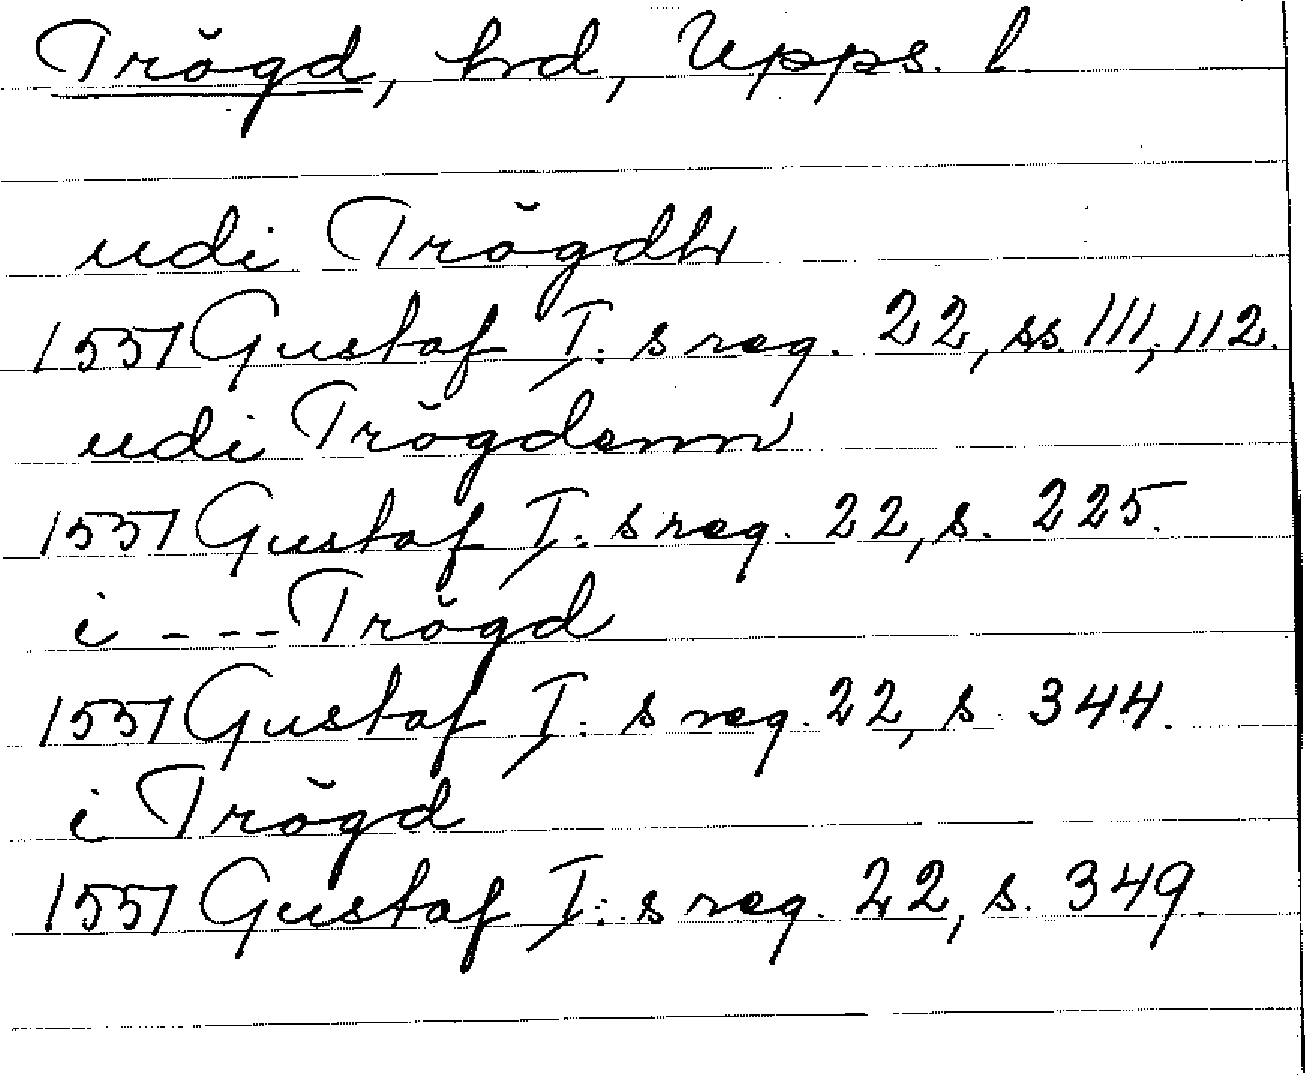 Trögd, hd, Upps. l
udi Trögdh
1551 Gustaf I:s reg. 22, ss. 111, 112.
udi Trögdenn
1551 Gustaf I:s reg. 22, s. 225.
i --- Trögd
1551 Gustaf I:s reg. 22, s. 344.
i Trögd
1551 Gustaf I:s reg. 22, s. 349.